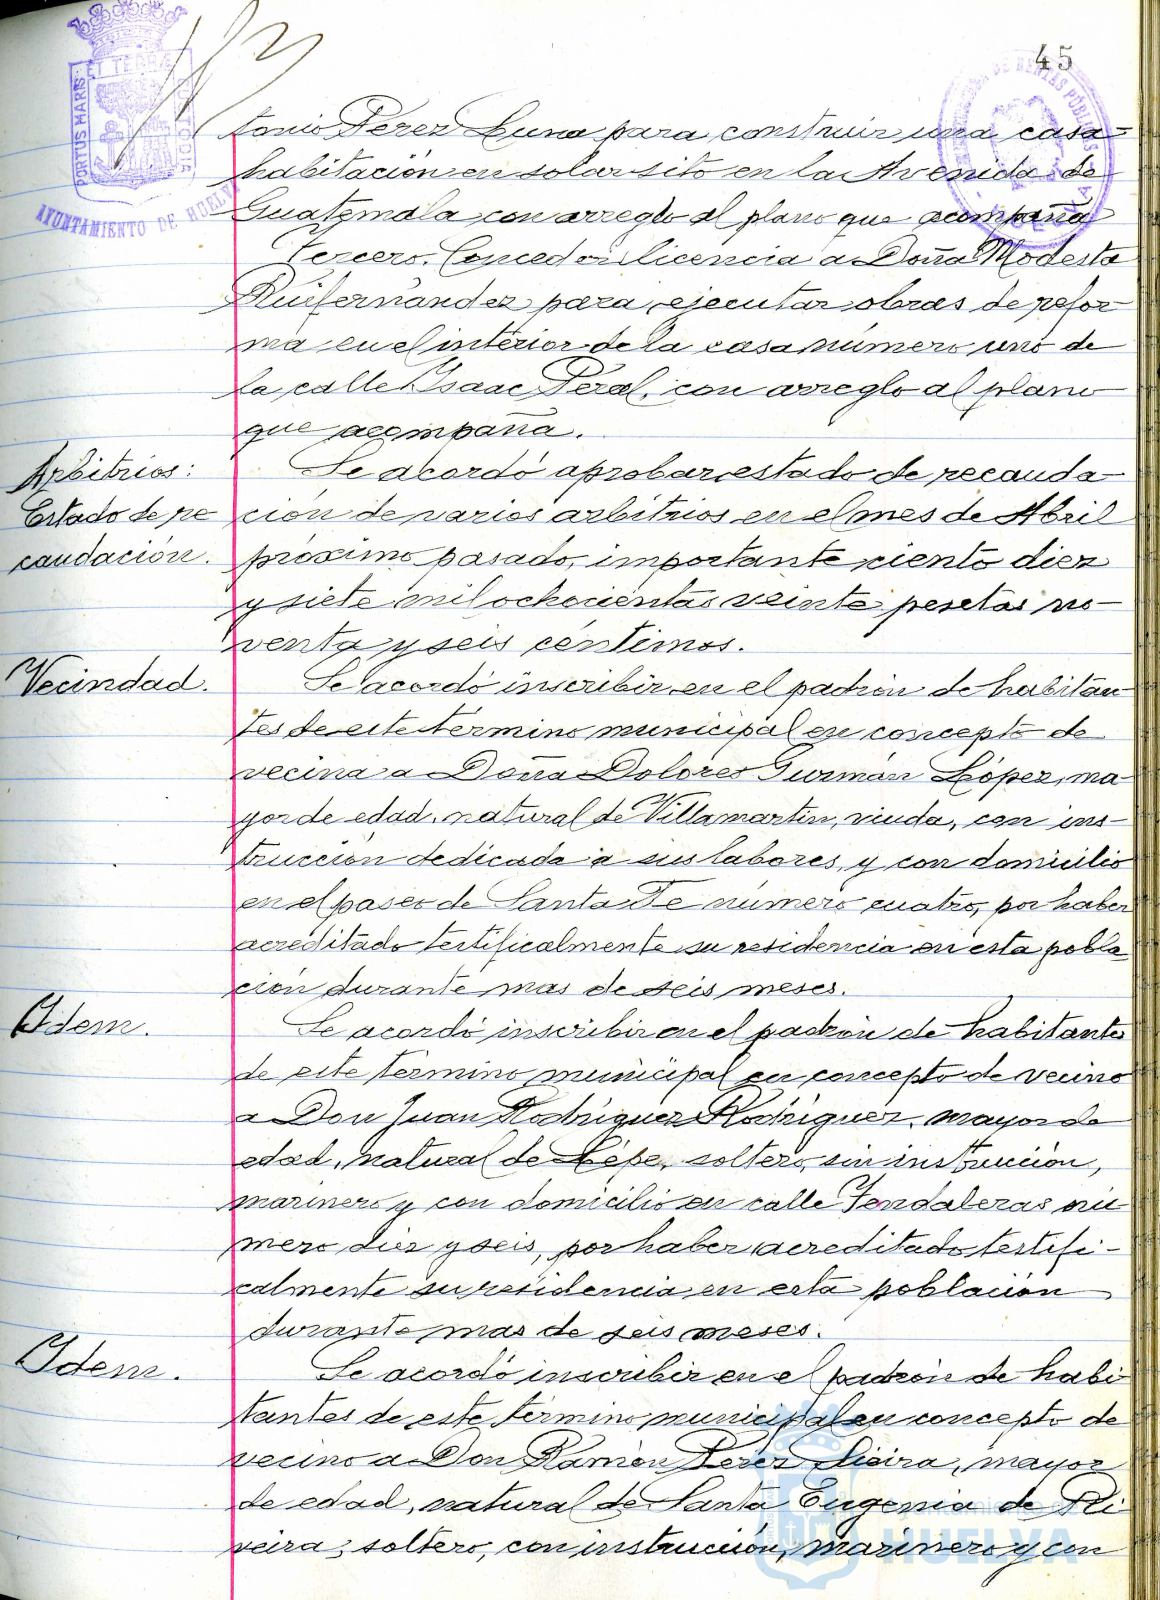 45
PORTUS MARIS ET TERRÆ CUSTODIA
AYUNTAMIENTO DE HUELVA
tonio Perez Luna para construir una casa-
habitación en solar sito en la Avenida de
Guatemala con arreglo al plano que acompaña
Tercero. Conceder licencia a Doña Modesta
Ruifernández para ejecutar obras de refor-
ma en el interior de la casa número uno de
la calle Isaac Peral, con arreglo al plano
que acompaña.
Arbitrios:
Estado de re
caudación.
Se acordó aprobar estado de recauda-
ción de varios arbitrios en el mes de Abril
próximo pasado, importante ciento diez
y siete mil ochocientas veinte pesetas no-
venta y seis céntimos.
Vecindad.
Se acordó inscribir en el padrón de habitan-
tes de este termino municipal en concepto de
vecina a Doña Dolores Guzmán López, ma-
yor de edad, natural de Villamartin, viuda, con ins-
trucción dedicada a sus labores, y con domicilio
en el paseo de Santa Fe número cuatro, por haber
acreditado testificalmente su residencia en esta pobla
ción durante mas de seis meses.
Idem.
Se acordó inscribir en el padrón de habitantes
de este término municipal en concepto de vecino
a Don Juan Rodríguez Rodríguez, mayor de
edad, natural de Lepe, soltero, sin instrucción,
marinero y con domicilio en calle Tendaleras nú
mero diez y seis, por haber acreditado testifi-
calmente su residencia en esta población
durante mas de seis meses.
Idem.
Se acordó inscribir en el padrón de habi
tantes de este término municipal en concepto de
vecino a Don Ramón Perez Sieira, mayor
de edad, natural de Santa Eugenia de Ri
veira, soltero, con instrucción, marinero y con
HUELVA